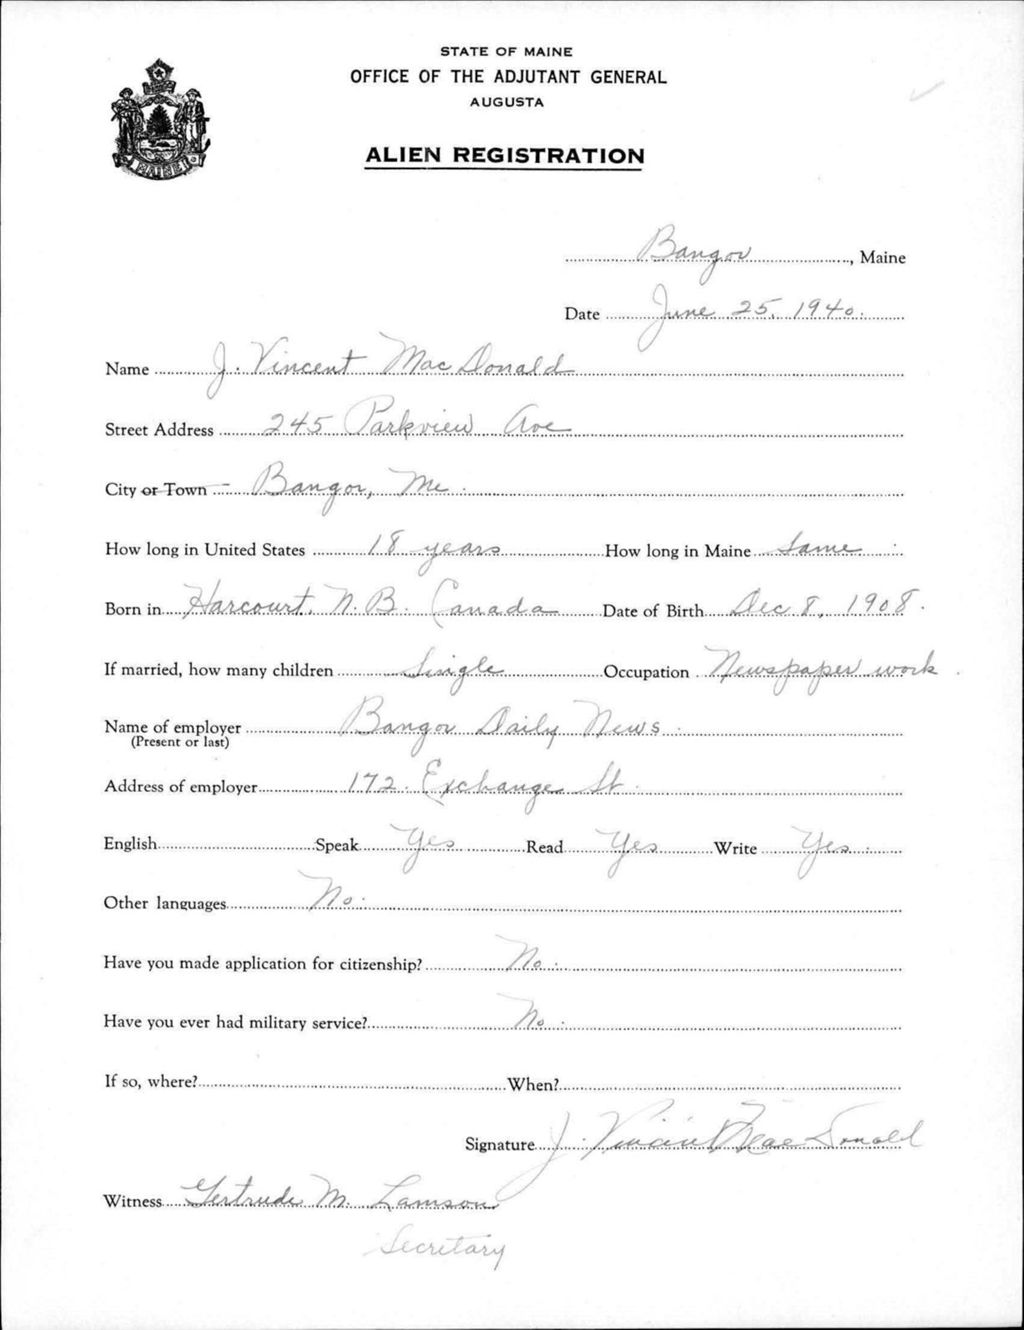 STATE OF MAINE
OFFICE OF THE ADJUTANT GENERAL
AUGUSTA
ALIEN REGISTRATION
MAINE
Bangor, Maine
Date June 25, 1940.
Name J. Vincent MacDonald
Street Address 245 Parkview Ave
City or Town Bangor, Me.
How long in United States 18 years How long in Maine Same
Born in Harcourt, N.B. Canada Date of Birth Dec 8, 1908.
If married, how many children Single Occupation Newspaper work.
Name of employer Bangor Daily News.
(Present or last)
Address of employer 172 Exchange St.
English Speak Yes Read Yes Write Yes.
Other languages No.
Have you made application for citizenship? No.
Have you ever had military service? No.
If so, where? When?
Signature J. Vincent MacDonald
Witness Gertrude M. Lamson
Secretary